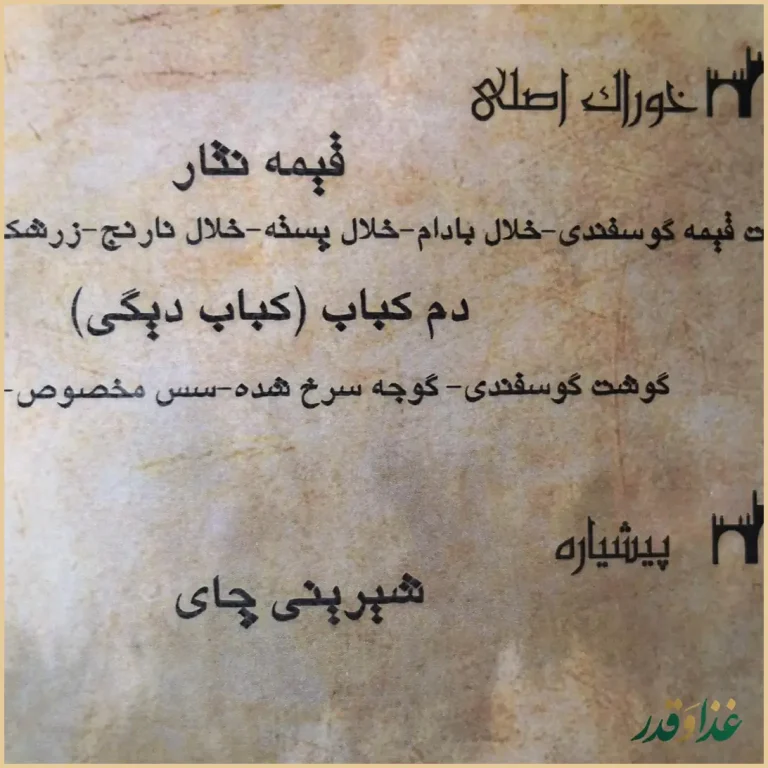 خوراک اصلی
قیمه نثار
ت قیمه گوسفندی-خلال بادام-خلال پسته-خلال نارنج-زرشک
دم کباب (کباب دیگی)
گوشت گوسفندی- گوجه سرخ شده-سس مخصوص-
پیشیاره
شیرینی چای
غذا و قدر